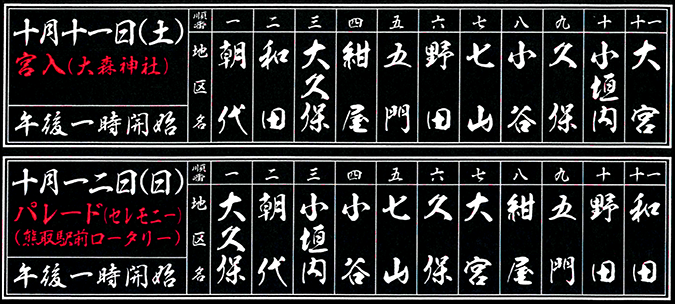 十月十一日(土)
宮入(大森神社)
午後一時開始
順番 一 二 三 四 五 六 七 八 九 十 十一
地区名 朝代 和田 大久保 紺屋 五門 野田 七山 小谷 久保 小垣内 大宮
十月一二日(日)
パレード(セレモニー)
(熊取駅前ロータリー)
午後一時開始
順番 一 二 三 四 五 六 七 八 九 十 十一
地区名 大久保 朝代 小垣内 小谷 七山 久保 大宮 紺屋 五門 野田 和田